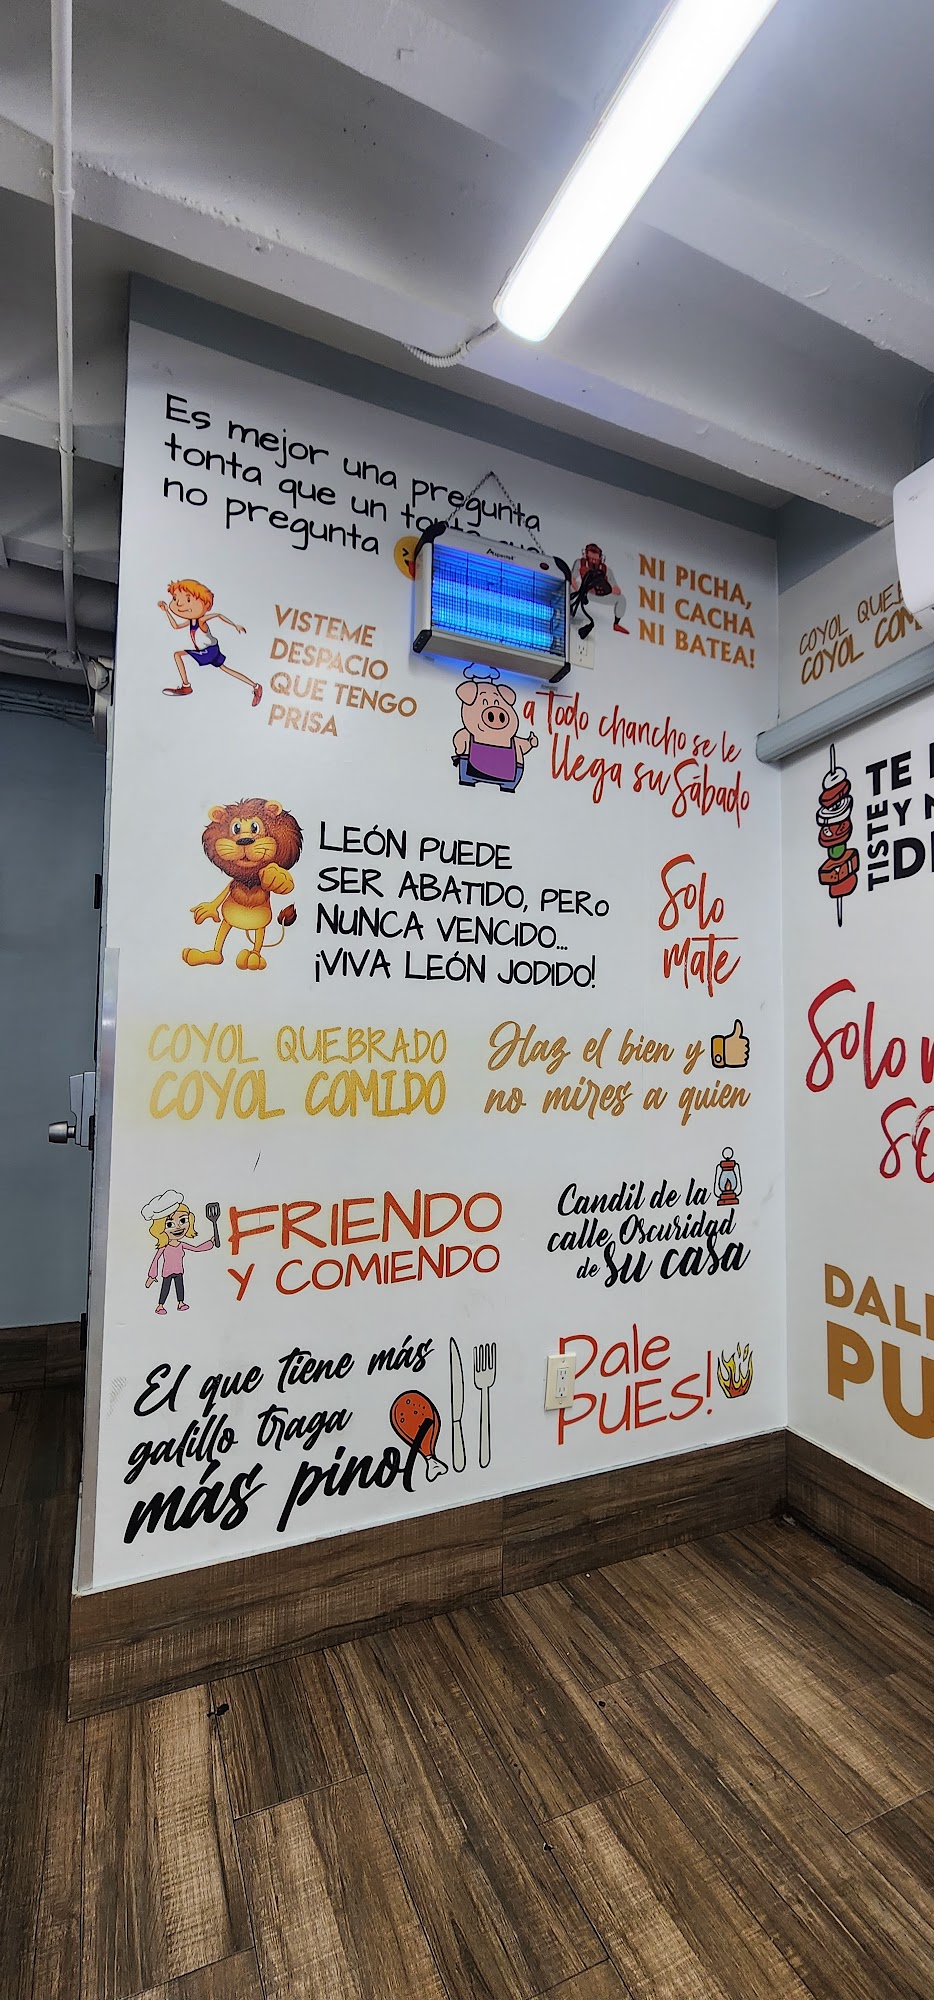 Es mejor una pregunta
tonta que un tonto que
no pregunta
NI PICHA,
NI CACHA
NI BATEA!
VISTEME
DESPACIO
QUE TENGO
PRISA
a Todo chancho se le
llega su Sábado
LEÓN PUEDE
SER ABATIDO, PERO
NUNCA VENCIDO...
¡VIVA LEÓN JODIDO!
Solo
mate
COYOL QUEBRADO
COYOL COMIDO
Haz el bien y
no mires a quien
FRIENDO
Y COMIENDO
Candil de la
calle Oscuridad
de su casa
El que tiene más
galillo traga
más pinol
Dale
PUES!
COYOL
COYOL
TE
TISTE
Y
Solo
DALE